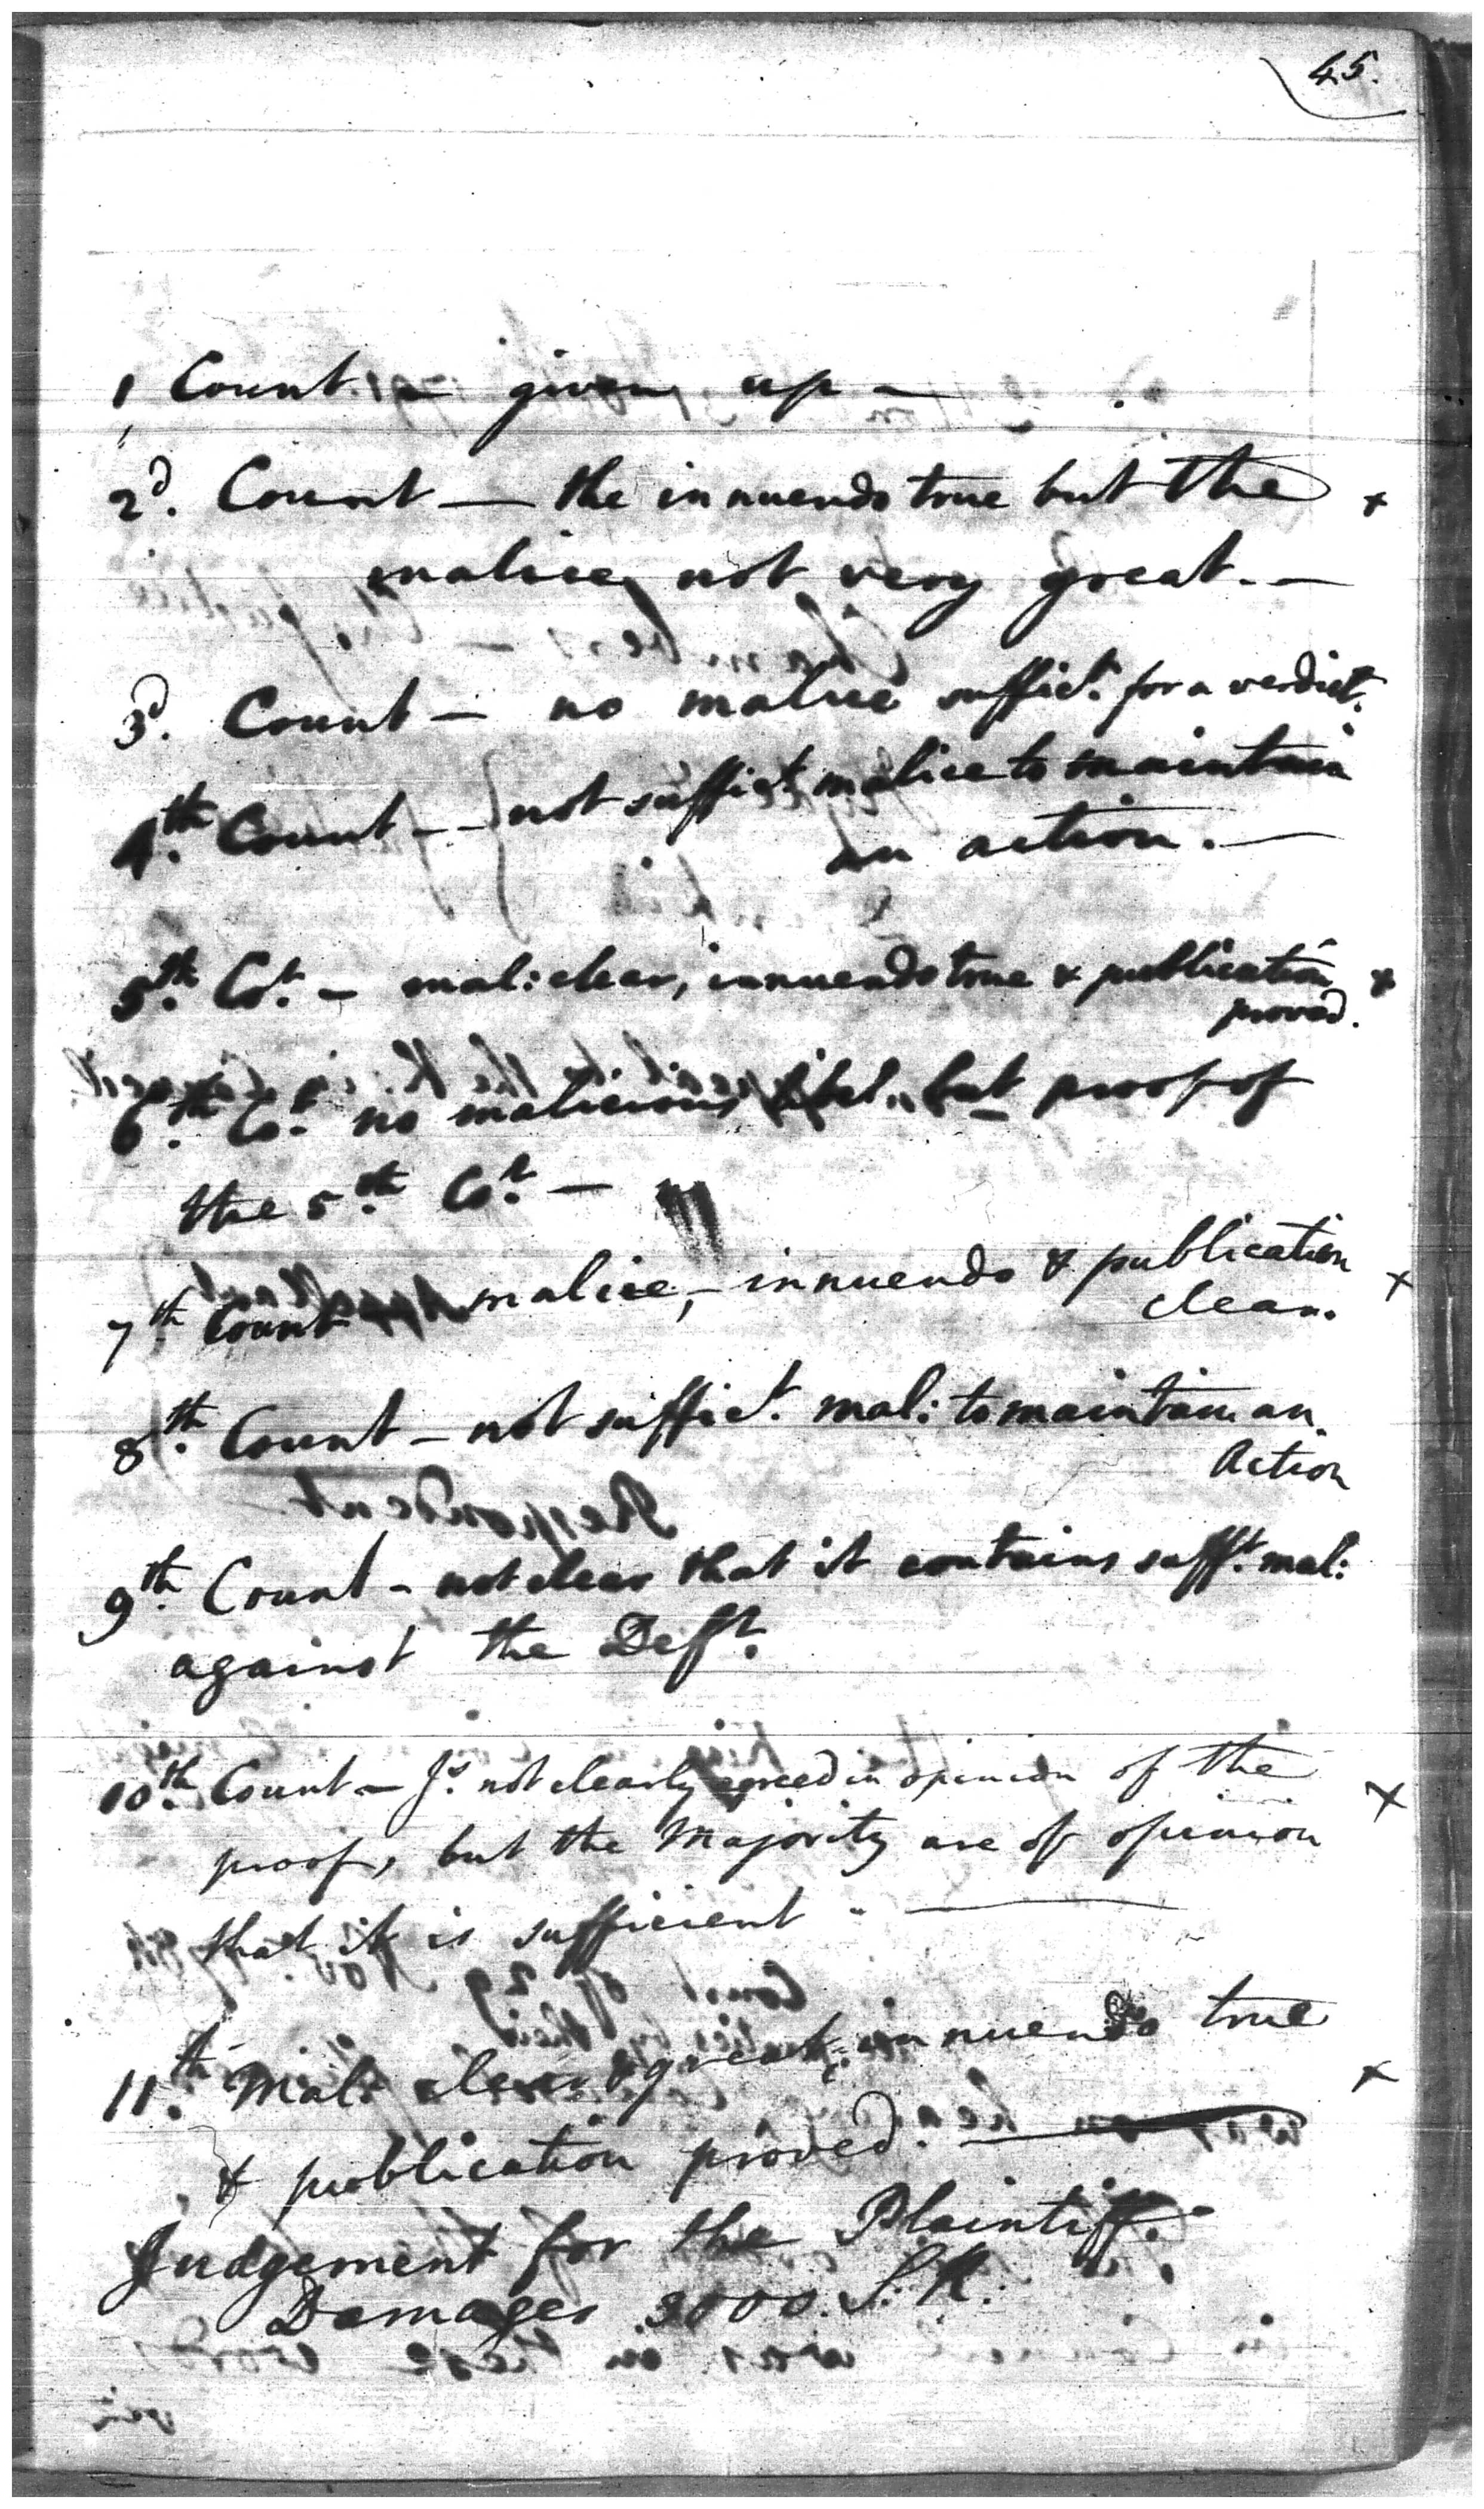 45.
1 Count – given up –
2d. Count — the innuendo true but the +
malice not very great. —
3d. Count — no malice suffict. for a verdict.
4th. Count -- not suffict. malice to maintain
an action. —
5th. Ct. – mal: clear, innuendo true & publication +
proved.
6th. Ct. no malicious libel, but proof of
the 5th. Ct. —
7th Count malice, – innuendo & publication +
clear.
8th. Count – not suffict. mal: to maintain an
Action
9th. Count – not clear that it contains sufft. mal:
against the Deft.
10th. Count – Js. not clearly agreed in opinion of the +
proof, but the Majority are of opinion
that it is sufficient —
11th. Mal: clear & great, innuendo true +
& publication proved. —
Judgement for the Plaintiff. –
Damages 3000. S. R.